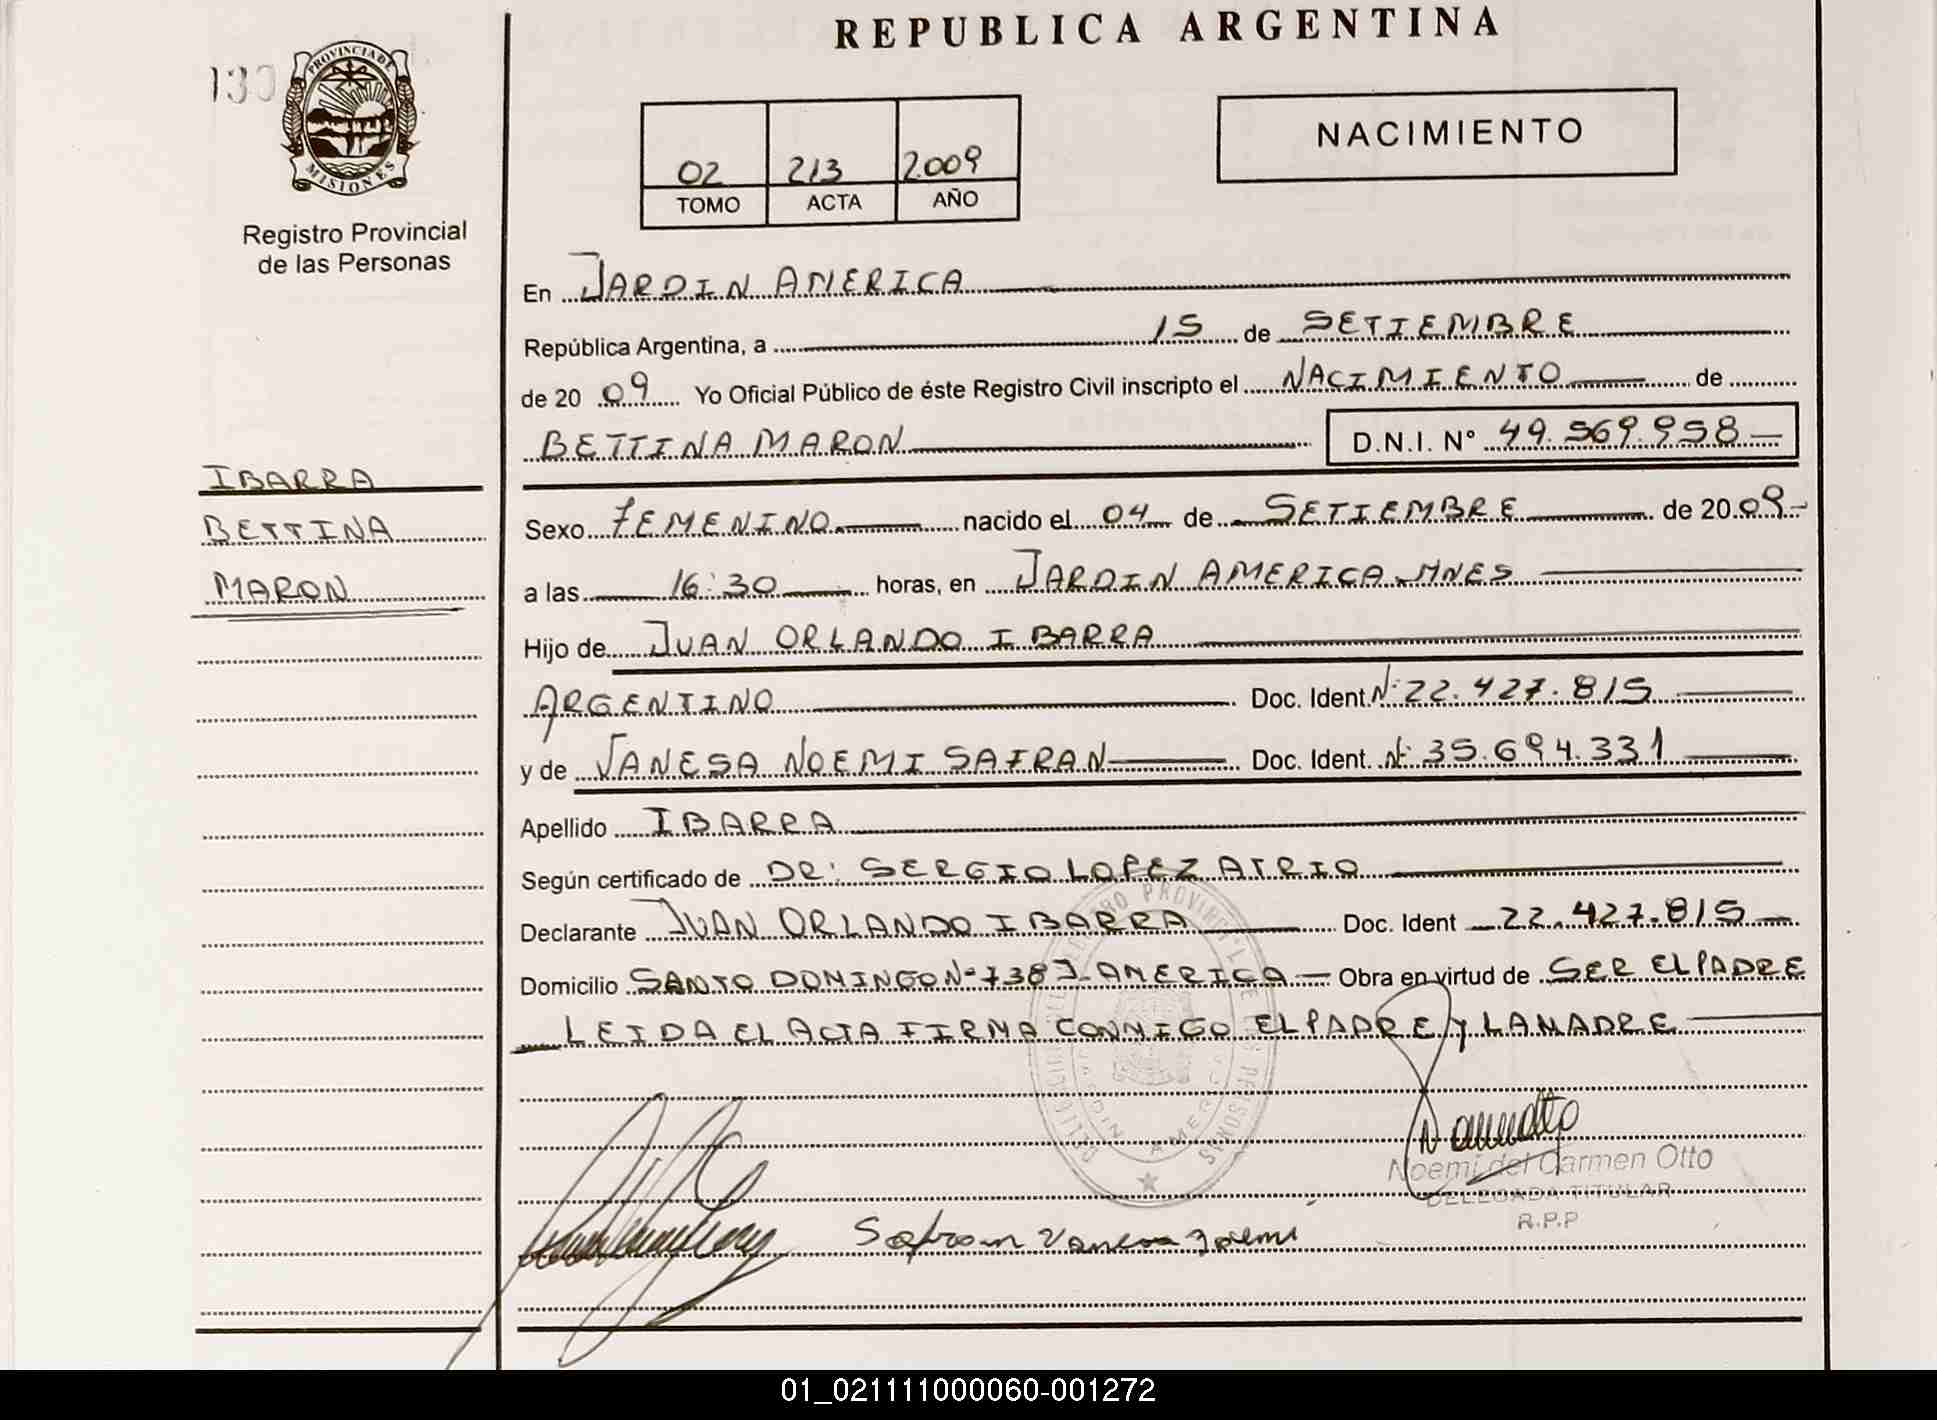 REPUBLICA ARGENTINA
PROVINCIA DE
MISIONES
Registro Provincial
de las Personas
NACIMIENTO
02 213 2009
TOMO ACTA AÑO
En JARDIN AMERICA
República Argentina, a 15 de SETIEMBRE
de 2009 Yo Oficial Público de éste Registro Civil inscripto el NACIMIENTO de
BETTINA MARON D.N.I. N° 49.569.958
IBARRA
BETTINA
MARON
Sexo FEMENINO nacido el 04 de SETIEMBRE de 2009
a las 16:30 horas, en JARDIN AMERICA MNES
Hijo de JUAN ORLANDO IBARRA
ARGENTINO Doc. Ident. N° 22.427.815
y de VANESA NOEMI SAFRAN Doc. Ident. N° 35.694.331
Apellido IBARRA
Según certificado de DR: SERGIO LOPEZ ATRIO
Declarante JUAN ORLANDO IBARRA Doc. Ident 22.427.815
Domicilio SANTO DOMINGO N° 738 J. AMERICA Obra en virtud de SER EL PADRE
LEIDA EL ACTA FIRMA CONMIGO EL PADRE Y LA MADRE
JARDIN AMERICA
Noemi del Carmen Otto
DELEGADA TITULAR
R.P.P
Safran Vanesa Noemi
01_021111000060-001272